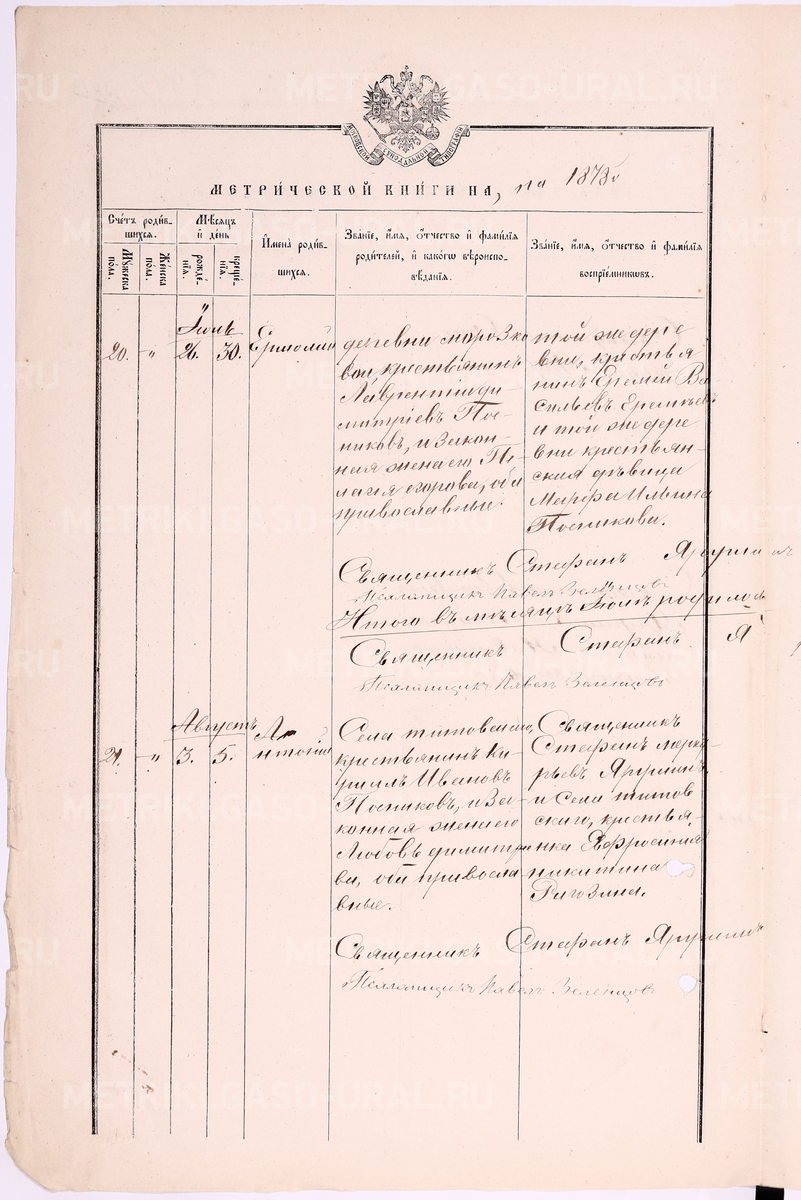 МЕТРИЧЕСКОЙ КНИГИ НА, на 1878 г
Счетъ родив-
шихся.
Мужеска
пола.
Женска
пола.
Мѣсяцъ
и день
рожде-
нія.
креще-
нія.
Имена родив-
шихся.
Званіе, имя, отчество и фамилія
родителей, и какого вѣроиспо-
вѣданія.
Званіе, имя, отчество и фамилія
воспріемниковъ.
Іюль
20. -"- 26. 30. Ермолай
деревни Морозко
вой, крестьянинъ
Лаврентій Ди-
митріевъ Пос-
никовъ, и закон-
ная жена его Пе-
лагія Егорова, оба
православные.
той же дере
вни, крестья
нинъ Еремій Ва
сильевъ Еремѣевъ
и той же дере
вни крестьян-
ская дѣвица
Марфа Ильина
Посникова.
Священникъ Стефанъ Ярушин
Псаломщикъ Павелъ Зеленцовъ
Итого въ мѣсяцѣ Іюлѣ родилось
Священникъ Стефанъ Я
Псаломщикъ Павелъ Зеленцовъ
Августъ
21. -"- 3. 5. Антоній
Села Титовскаго,
крестьянинъ Ки-
риллъ Ивановъ
Посниковъ, и за-
конная жена его
Любовь Димитріе
ва, оба правосла-
вные.
Священникъ
Стефанъ Мерку
рьевъ Ярушинъ,
и Села Титов
скаго, крестья-
нка Ефросинія
Никитина
Рагозина.
Священникъ Стефанъ Ярушинъ
Псаломщикъ Павелъ Зеленцовъ
METRIKI.GASO-URAL.RU